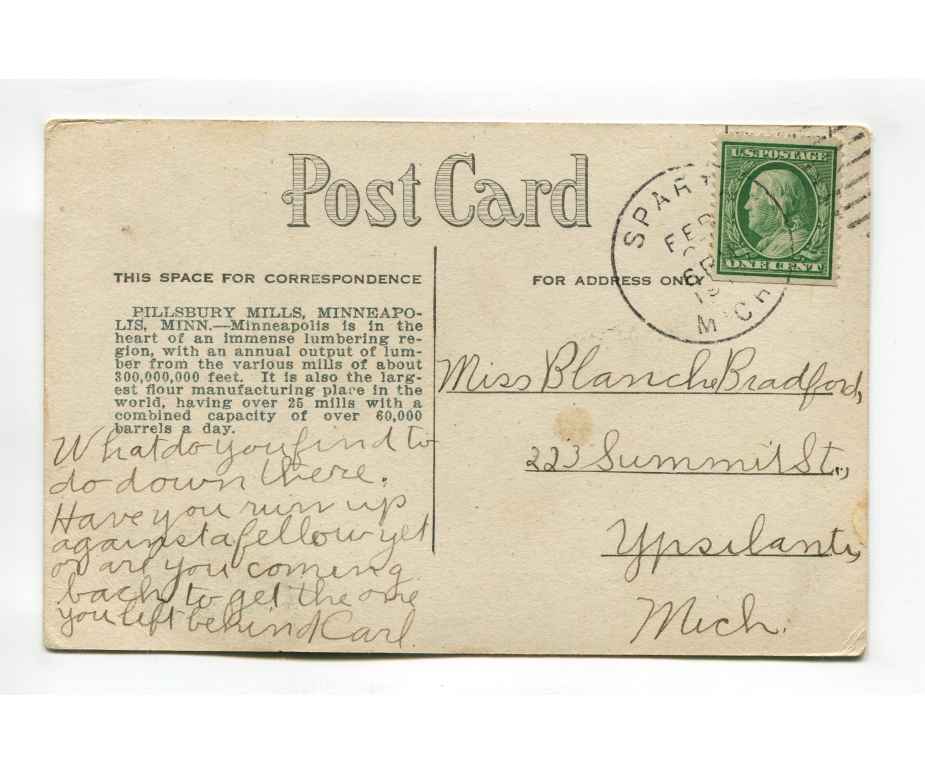 Post Card
U.S. POSTAGE
ONE CENT
SPAR
FEB
MICH
THIS SPACE FOR CORRESPONDENCE
FOR ADDRESS ON
PILLSBURY MILLS, MINNEAPO-
LIS, MINN.—Minneapolis is in the
heart of an immense lumbering re-
gion, with an annual output of lum-
ber from the various mills of about
300,000,000 feet. It is also the larg-
est flour manufacturing place in the
world, having over 25 mills with a
combined capacity of over 60,000
barrels a day.
What do you find to
do down there.
Have you run up
against a fellow yet
or are you coming
back to get the one
you left behind Carl
Miss Blanche Bradford,
223 Summit St.,
Ypsilanti,
Mich.